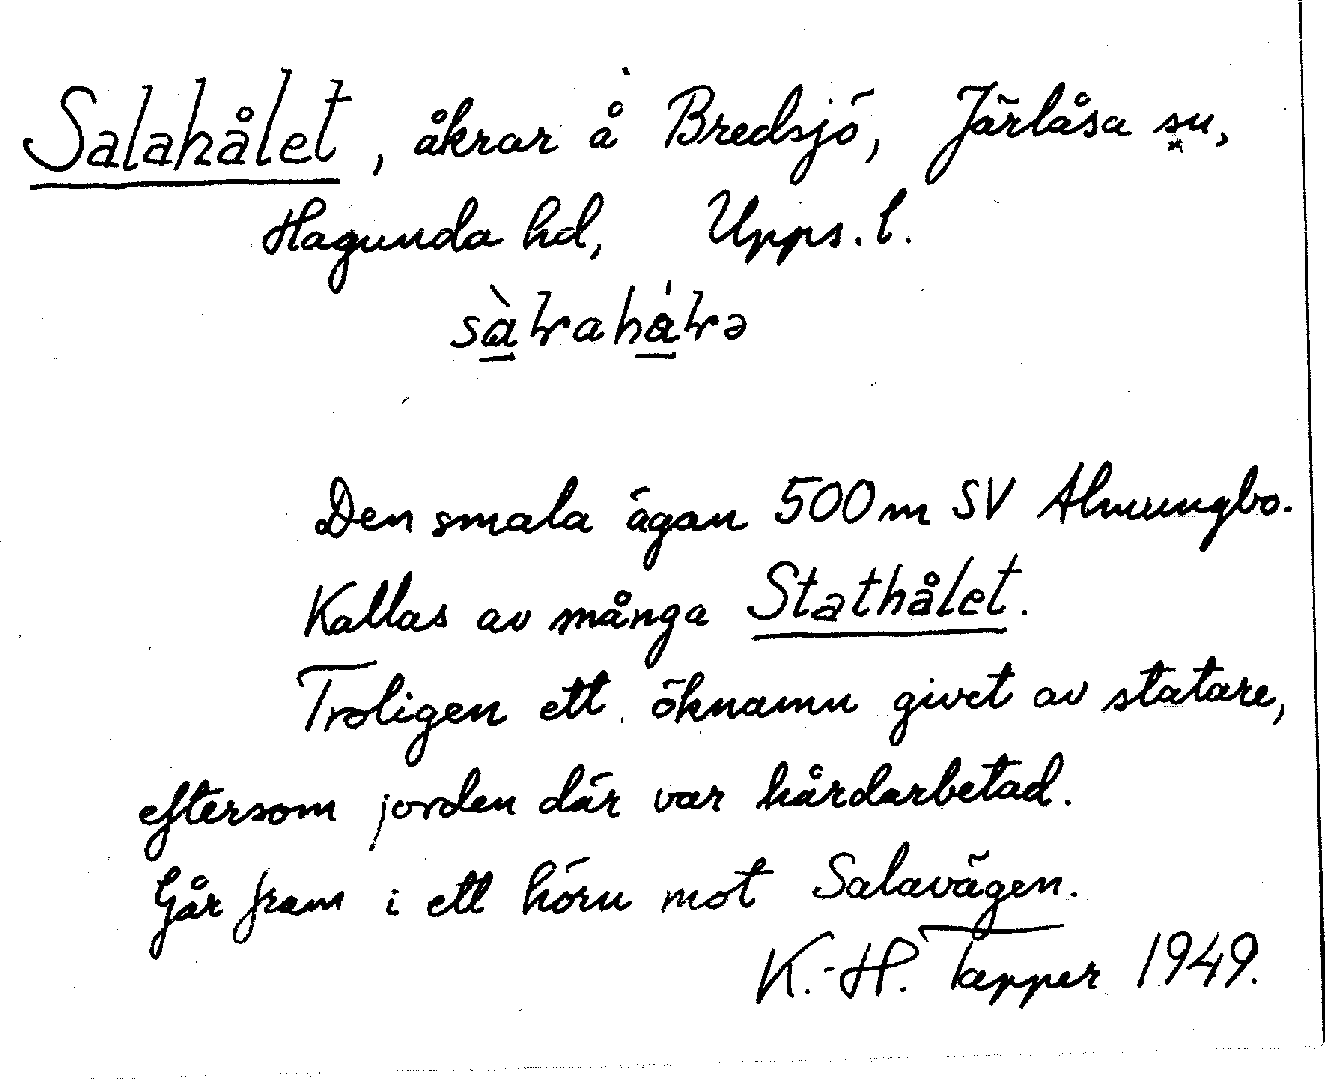 Salahålet, åkrar å Bredsjö, Järlåsa sn,
Hagunda hd, Upps. l.
Den smala ägan 500 m SV Almungbo.
Kallas av många Stathålet.
Troligen ett öknamn givet av statare,
eftersom jorden där var hårdarbetad.
Går fram i ett hörn mot Salavägen.
K.-H. Tapper 1949.